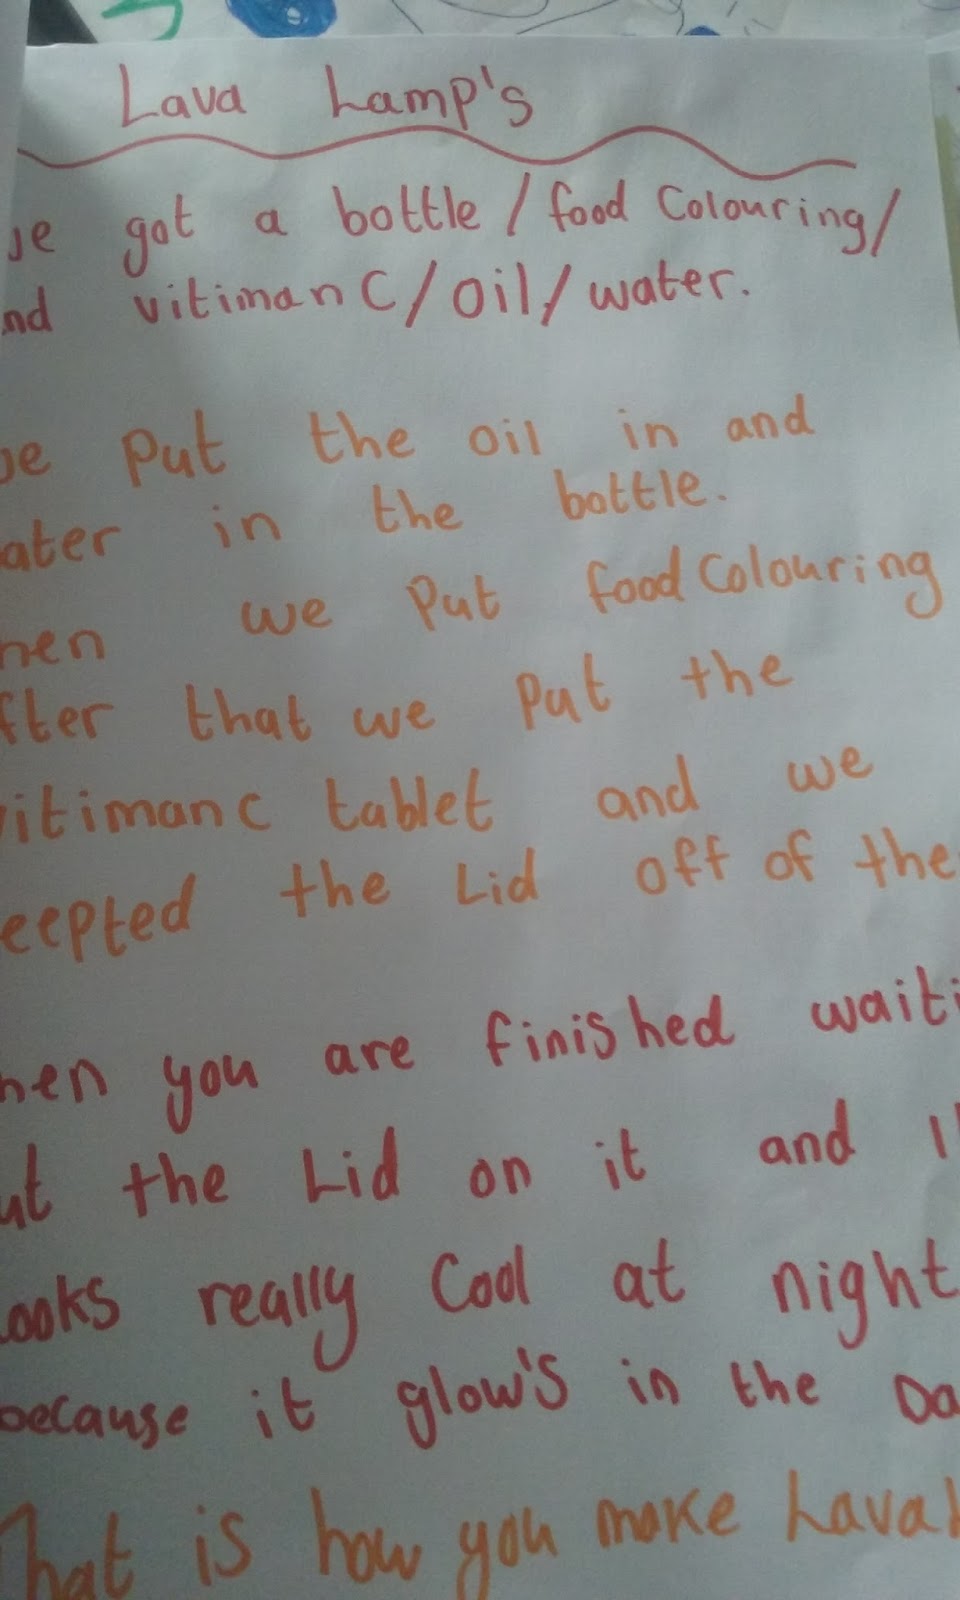 Lava Lamp's
we got a bottle / food Colouring/
and vitiman C/oil/water.
we put the oil in and
water in the bottle.
then we put food Colouring
after that we put the
vitiman C tablet and we
keepted the Lid off of the
when you are finished waiti
put the Lid on it and it
Looks really Cool at night
because it glow's in the Da
That is how you make Lava L